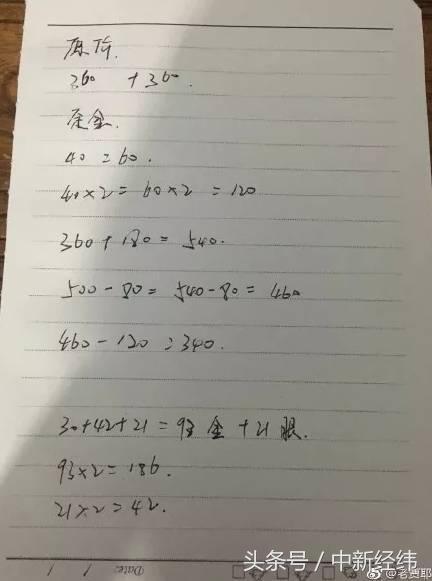 原价.
360 + 360.
定金.
40 = 60.
40×2 = 60×2 = 120
360 + 180 = 540.
500 - 80 = 540 - 80 = 460
460 - 120 = 340.
30+42+21 = 93 金 + 21 眼.
93×2 = 186.
21×2 = 42.
Date: / /
头条号 / 中新经纬
@老贾耶